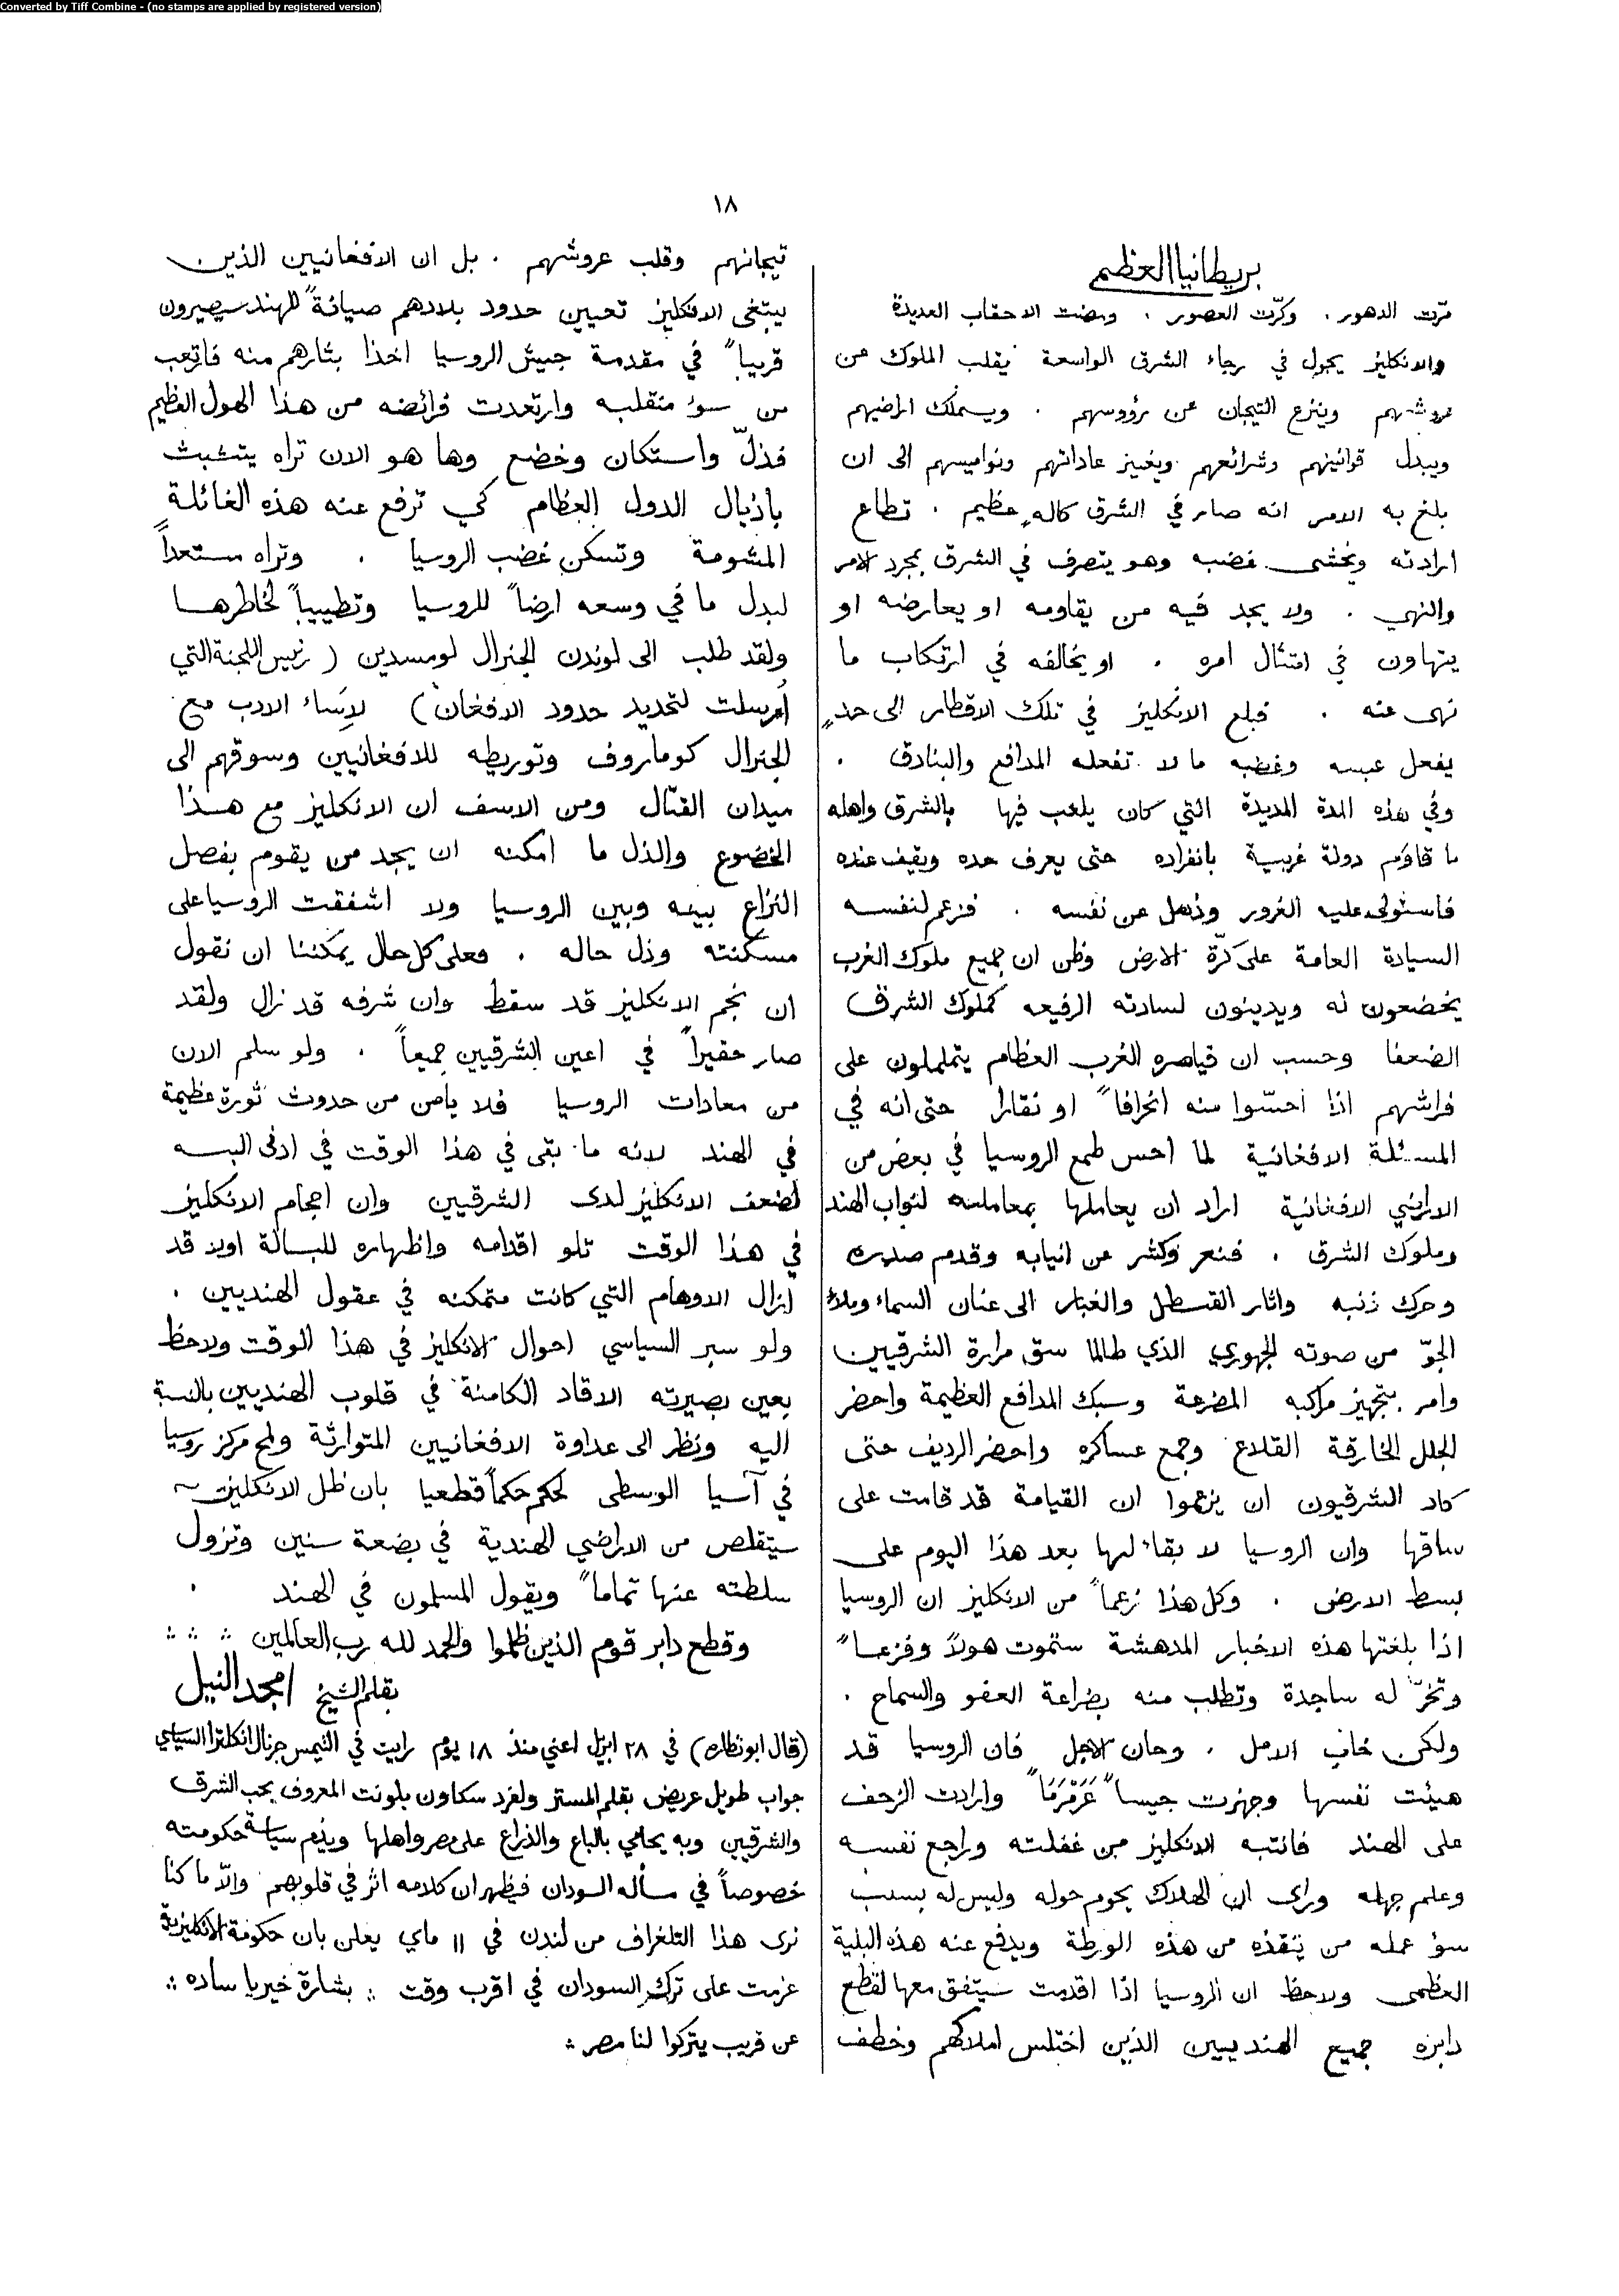 Converted by Tiff Combine - (no stamps are applied by registered version)
١٨
بريطانيا العظمى
مرّت الدهور . وكرّت العصور . ومضت الاحقاب العديدة
والانكليز يجول في رجاء الشرق الواسعة يقلب الملوك عن
عروشهم وينزع التيجان عن رؤوسهم . ويستملك اراضيهم
ويبدل قوانينهم وشرائعهم ويغيير عاداتهم ونواميسهم الى ان
بلغ به الامر انه صار في الشرق كالهٍ عظيم . تطاع
ارادته ويخشى غضبه وهو يتصرف في الشرق بمجرد الامر
والنهي . ولا يجد فيه من يقاومه او يعارضه او
يتهاون في امتثال امره . او يخالفه في ارتكاب ما
نهى عنه . فبلغ الانكليز في تلك الاقطار الى حدٍ
يفعل عبسه وغضبه ما لا تفعله المدافع والبنادق .
وفي هذه المدة المديدة التي كان يلعب فيها بالشرق واهله
ما قاوم دولة غربية بانفراده حتى يعرف حده ويقيف عنده
فاستولى عليه الغرور وذهل عن نفسه . فزعم لنفسه
السيادة العامة على كرّة الارض وظن ان جميع ملوك الغرب
يخضعون له ويدينون لسادته الرفيعه كملوك الشرق
الضعفا وحسب ان قياصره الغرب العظام يتململون على
فراشهم اذا احسّوا منه انحرافاً او نقارا حتى انه في
المسئلة الافغانية لما احس طمع الروسيا في بعض من
الاراضي الافغانية اراد ان يعاملها بمعاملته لنواب الهند
وملوك الشرق . فنعر وكشر عن انيابه وقدم صدره
وحرك ذنبه واثار القسطل والغبار الى عنان السماء وملأ
الجوّ من صوته الجهوري الذي طالما شق مرارة الشرقيين
وامر بتجهيز مراكبه المضرعة وسبك المدافع العظيمة واحضر
الجلل الخارقة القلاع وجمع عساكره واحضر الرديف حتى
كاد الشرقيون ان يزعموا ان القيامة قد قامت على
ساقها وان الروسيا لا بقاء لها بعد هذا اليوم على
بسط الارض . وكل هذا زعماً من الانكليز ان الروسيا
اذا بلغتها هذه الاخبار المدهشة ستموت هولاً وفزعاً
وتخرّ له ساجدة وتطلب منه بضراعة العفو والسماح .
ولكن خاب الامل . وحان الاجل فان الروسيا قد
هيئت نفسها وجهزت جيساً عَرَمْرَمَاً وارادت الزحف
على الهند فانتبه الانكليز من غفلته وراجع نفسه
وعلم جهله وراى ان الهلاك يحوم حوله وليس له بسبب
سؤ عمله من ينقذه من هذه الورطة ويدفع عنه هذه البلية
العظمى ولاحظ ان الروسيا اذا اقدمت سيتفق معها لقطع
دابره جميع الهنديين الذين اختلس املاكهم وخطف
تيجانهم وقلب عروشهم . بل ان الافغانيين الذين
يبتغى الانكليز تعيين حدود بلادهم صيانةً للهند سيصيرون
قريباً في مقدمة جيش الروسيا اخذا بثارهم منه فارتعب
من سؤ منقلبه وارتعدت فرائضه من هذا الهول العظيم
فذلّ واستكان وخضع وها هو الان تراه يتشبث
باذيال الدول العظام كي ترفع عنه هذه الغائلة
المشومة وتسكن غضب الروسيا . وتراه مستعداً
لبدل ما في وسعه ارضاً للروسيا وتطييباً لخاطرها
ولقد طلب الى لوندن الجنرال لومسدين (رئيس اللجنة التي
أُرسلت لتحديد حدود الافغان) لاِسَاء الادب مع
الجنرال كوماروف وتوريطه للافغانيين وسوقهم الى
ميدان القتال ومن الاسف ان الانكليز مع هذا
الخضوع والذل ما امكنه ان يجد من يقوم بفصل
النزاع بينه وبين الروسيا ولا اشفقت الروسيا على
مسكنته وذل حاله . فعلى كل حال يمكننا ان نقول
ان نجم الانكليز قد سقط وان شرفه قد زال ولقد
صار حقيراً في اعين الشرقيين جميعاً . ولو سلم الان
من معادات الروسيا فلا يامن من حدوث ثورة عظيمة
في الهند لانه ما بقى في هذا الوقت في ادنى البسه
لضعف الانكليز لدى الشرقيين وان احجام الانكليز
في هذا الوقت تلو اقدامه واظهاره للبسالة اولا قد
ازال الاوهام التي كانت متمكنه في عقول الهنديين .
ولو سبر السياسي احوال الانكليز في هذا الوقت ولاحظ
بعين بصيرته الاقاد الكامنة في قلوب الهنديين بالنسبة
اليه ونظر الى عداوة الافغانيين المتوارثة ولمح مركز روسيا
في آسيا الوسطى لحكم حكماً قطعيا بان ظل الانكليز
سيتقلص من الاراضي الهندية في بضعة سنين وتزول
سلطته عنها تماماً ويقول المسلمون في الهند .
وقطع دابر قوم الذين ظلموا والحمد لله رب العالمين
بقلم الشيخ امجد النيل
(قال ابو نظاره) في ٢٨ ابريل اعني منذ ١٨ يوم رايت في التيمس جرنال انكلترا السياسي
جواب طويل عريض بقلم المستر ولفرد سكاون بلونت المعروف بحب الشرق
والشرقيين وبه يحامي بالباع والذراع على مصر واهلها ويذم سياسة حكومته
خصوصاً في مسأله السودان فيظهر ان كلامه اثر في قلوبهم والاّ ما كنا
نرى هذا التلغراف من لندن في ١١ ماي يعلن بان حكومة الانكليزية
عزمت على ترك السودان في اقرب وقت : بشارة خير يا ساده :
عن قريب يتركوا لنا مصر :